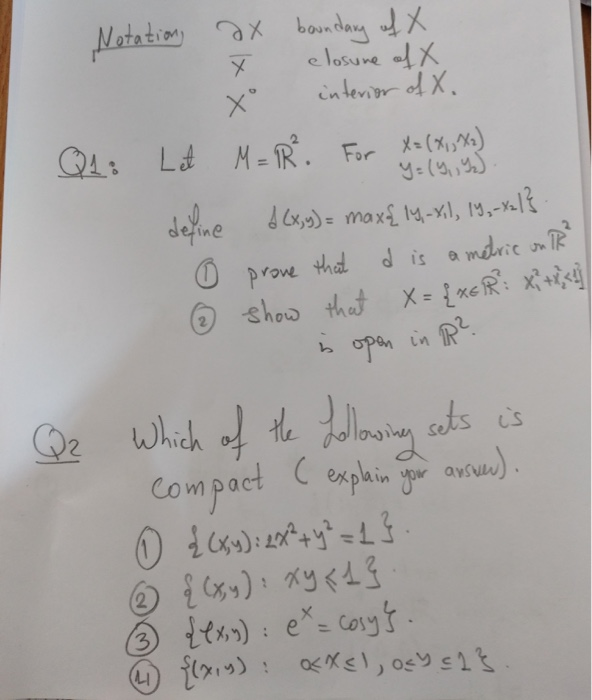 Notation, ∂X boundary of X
X̅ closure of X
X° interior of X.
Q1: Let M = ℝ². For x=(x₁,x₂)
y=(y₁,y₂).
define d(x,y) = max{ |y₁-x₁|, |y₂-x₂| }.
① prove that d is a metric on ℝ²
② show that X = {x∈ℝ²: x₁²+x₂²<1}
is open in ℝ².
Q2 Which of the following sets is
compact ( explain your answer).
① {(x,y): 2x²+y² = 1}.
② {(x,y): xy ≤ 1}
③ {(x,y): eˣ = cosy}.
④ {(x,y): 0<x≤1, 0≤y≤1}.